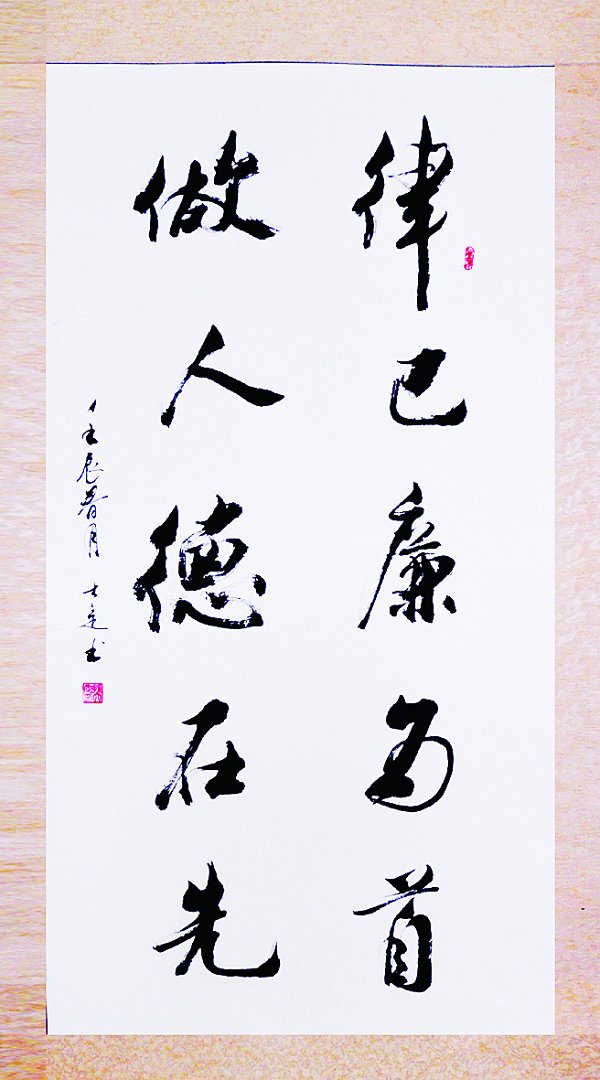 律己廉为首
做人德在先
壬辰春月 士定书